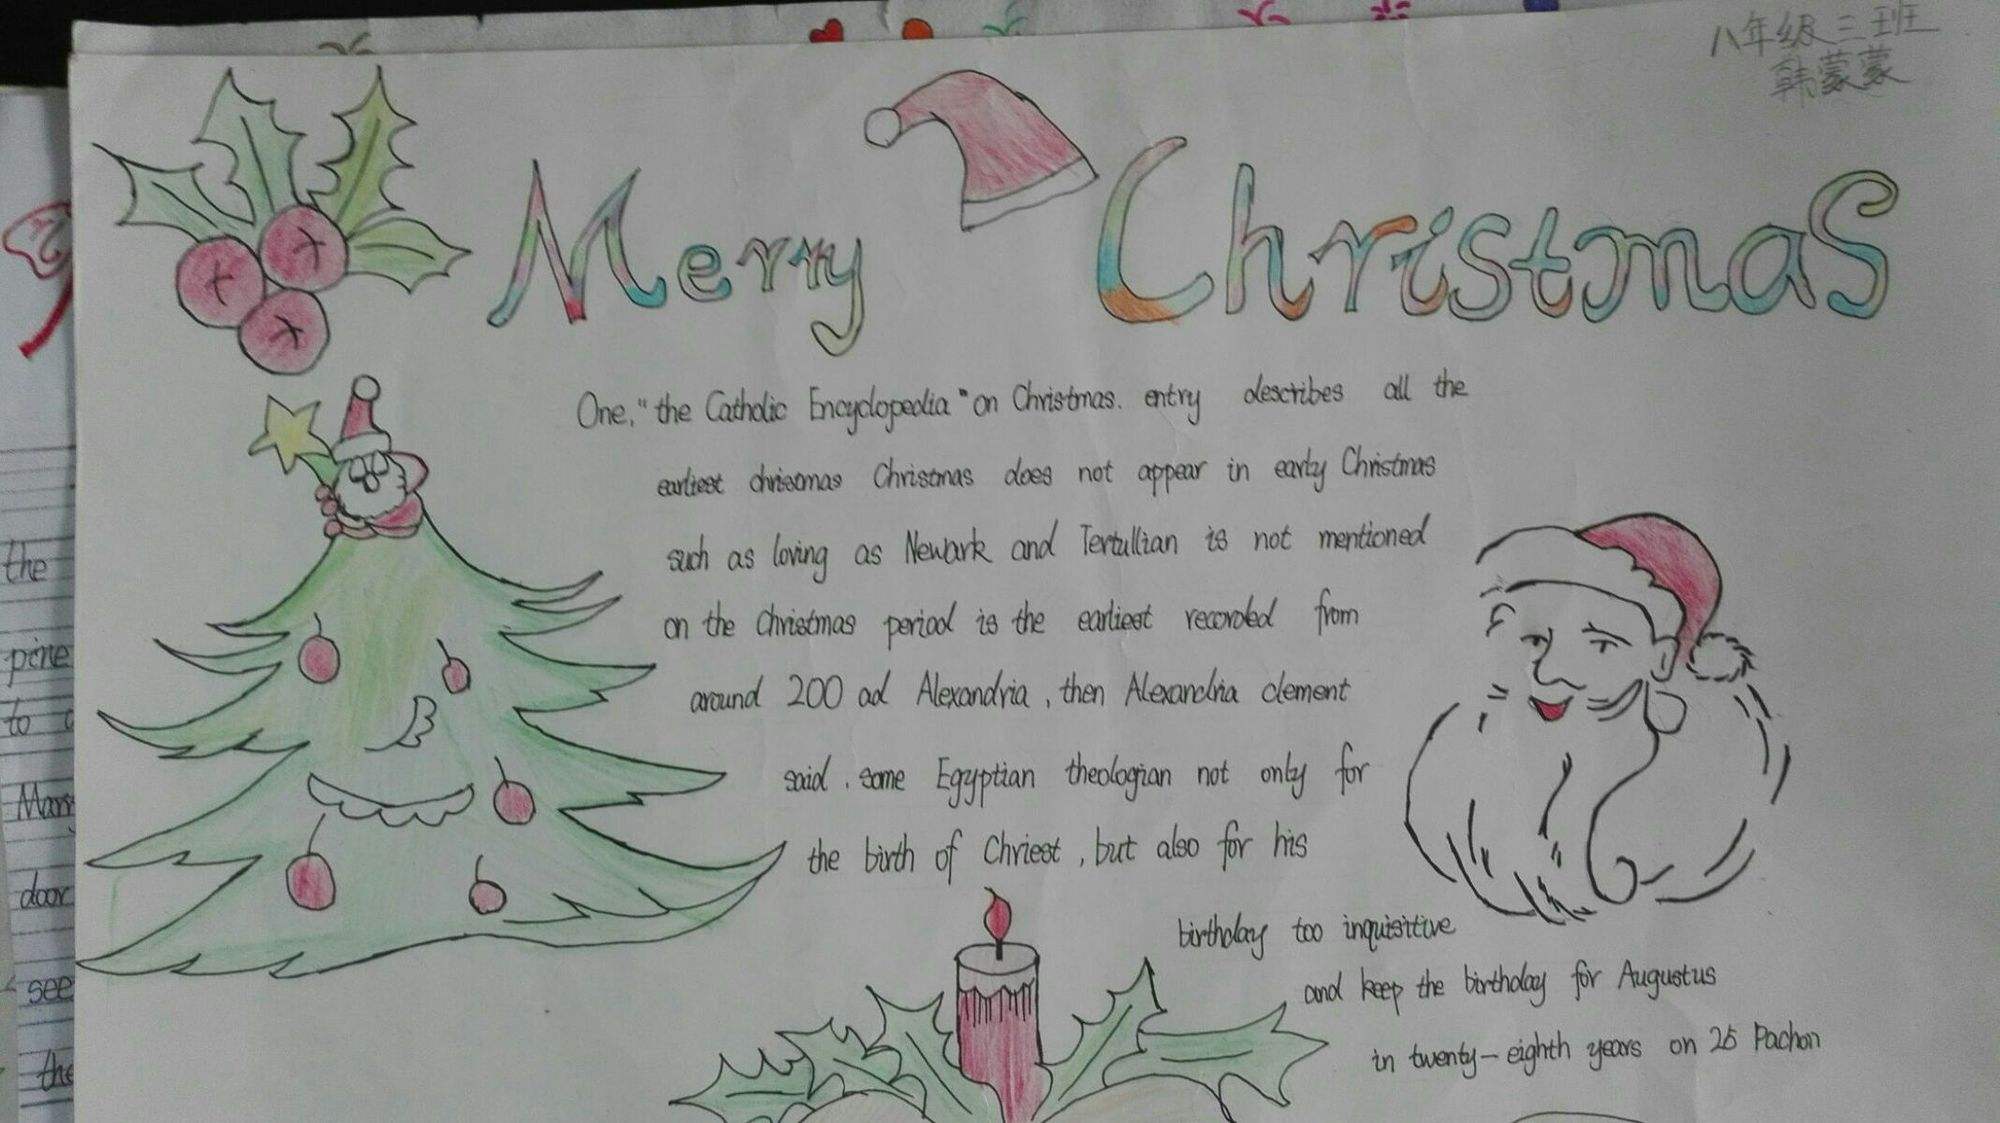 八年级三班
韩蒙蒙
Merry Christmas
One,"the Catholic Encyclopedia"on Christmas. entry describes all the
earliest chrisomas Chrisomas does not appear in early Christmas
such as loving as Newark and Tertullian is not mentioned
on the Christmas period is the earliest recorded from
around 200 ad Alexandria, then Alexandria clement
said, some Egyptian theologian not only for
the birth of Chriest, but also for his
birthday too inquisitive
and keep the birthday for Augustus
in twenty-eighth years on 25 Pachon
the
pine
to
Mary
door
see
the